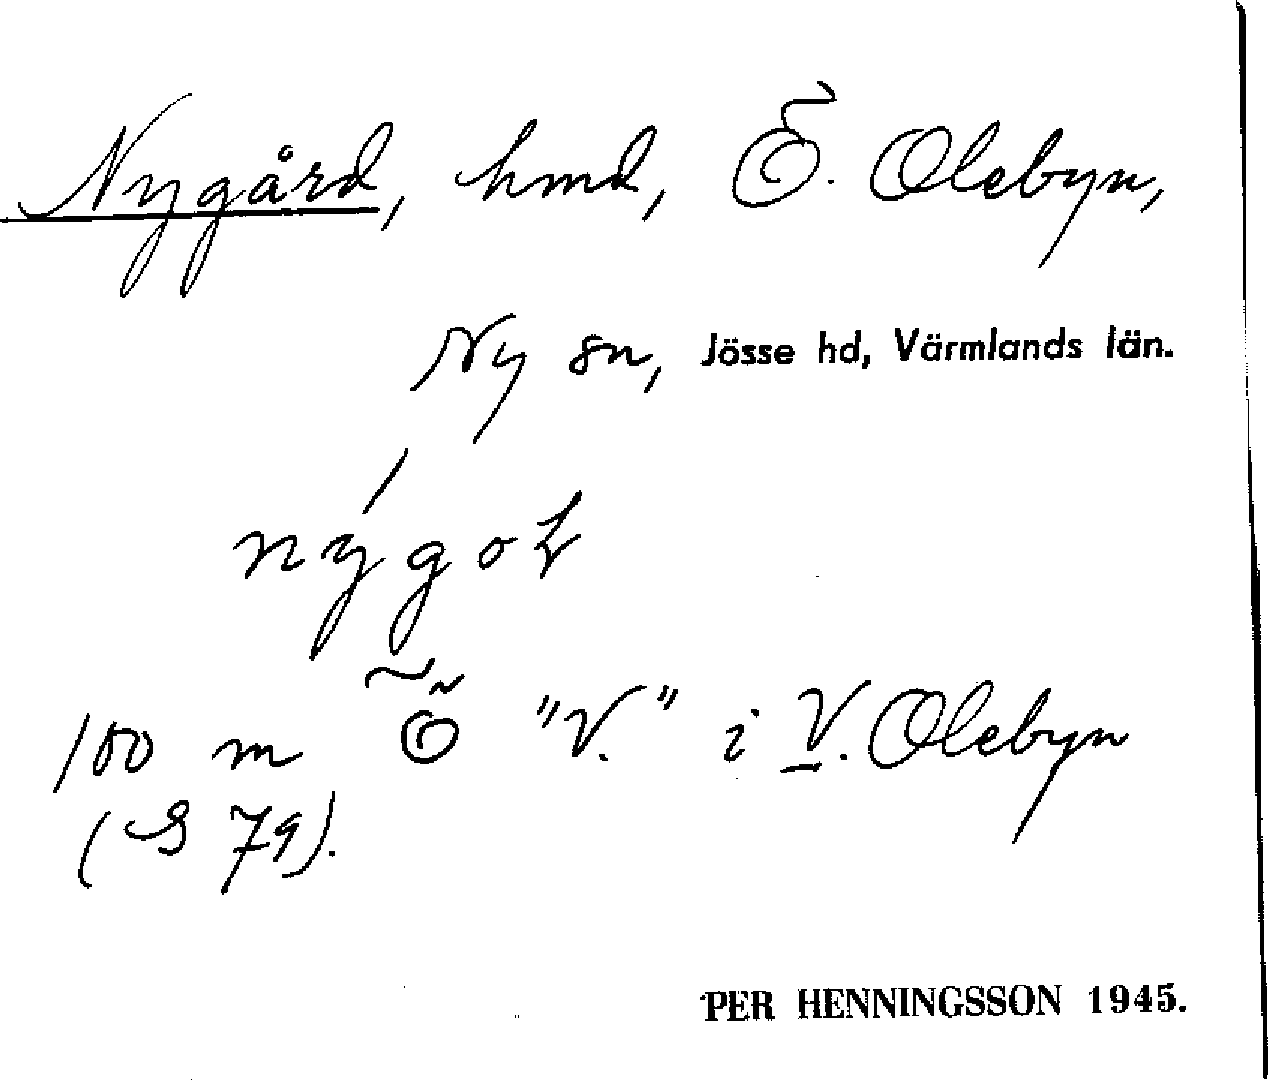 Nygård, hmd, Ö. Olebyn,
Ny sn, Jösse hd, Värmlands län.
100 m Ö "V." i V. Olebyn
(S 79).
PER HENNINGSSON 1945.